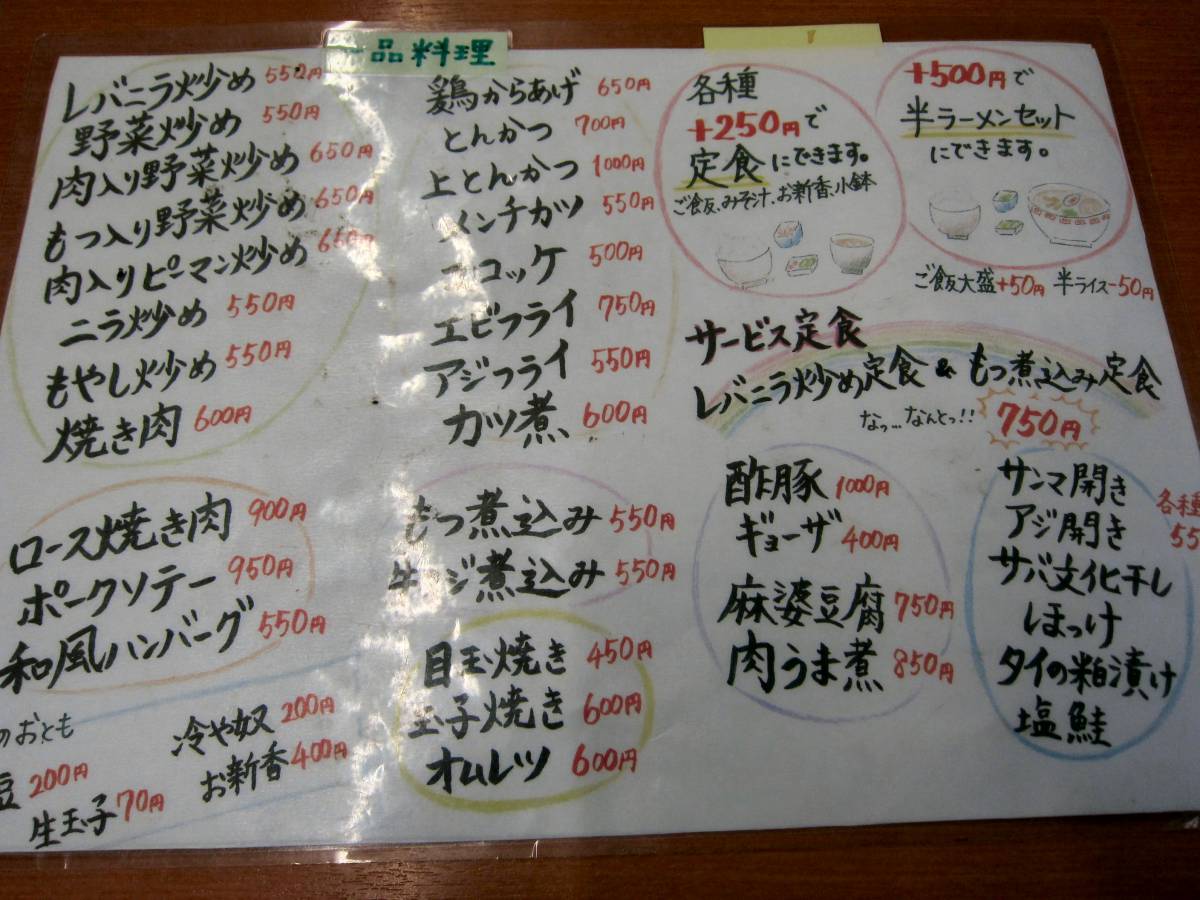 品料理
レバニラ炒め 550円
野菜炒め 550円
肉入り野菜炒め 650円
もつ入り野菜炒め 650円
肉入りピーマン炒め 650円
ニラ炒め 550円
もやし炒め 550円
焼き肉 600円
ロース焼き肉 900円
ポークソテー 950円
和風ハンバーグ 550円
のおとも
冷や奴 200円
お新香 400円
豆 200円
生玉子 70円
鶏からあげ 650円
とんかつ 700円
上とんかつ 1000円
メンチカツ 550円
コロッケ 500円
エビフライ 750円
アジフライ 550円
カツ煮 600円
もつ煮込み 550円
牛スジ煮込み 550円
目玉焼き 450円
玉子焼き 600円
オムレツ 600円
各種
+250円で
定食にできます。
ご飯、みそ汁、お新香、小鉢
+500円で
半ラーメンセット
にできます。
ご飯大盛+50円 半ライス-50円
サービス定食
レバニラ炒め定食 & もつ煮込み定食
なっ…なんとっ!! 750円
酢豚 1000円
ギョーザ 400円
麻婆豆腐 750円
肉うま煮 850円
サンマ開き
アジ開き
サバ文化干し
ほっけ
タイの粕漬け
塩鮭
各種
55